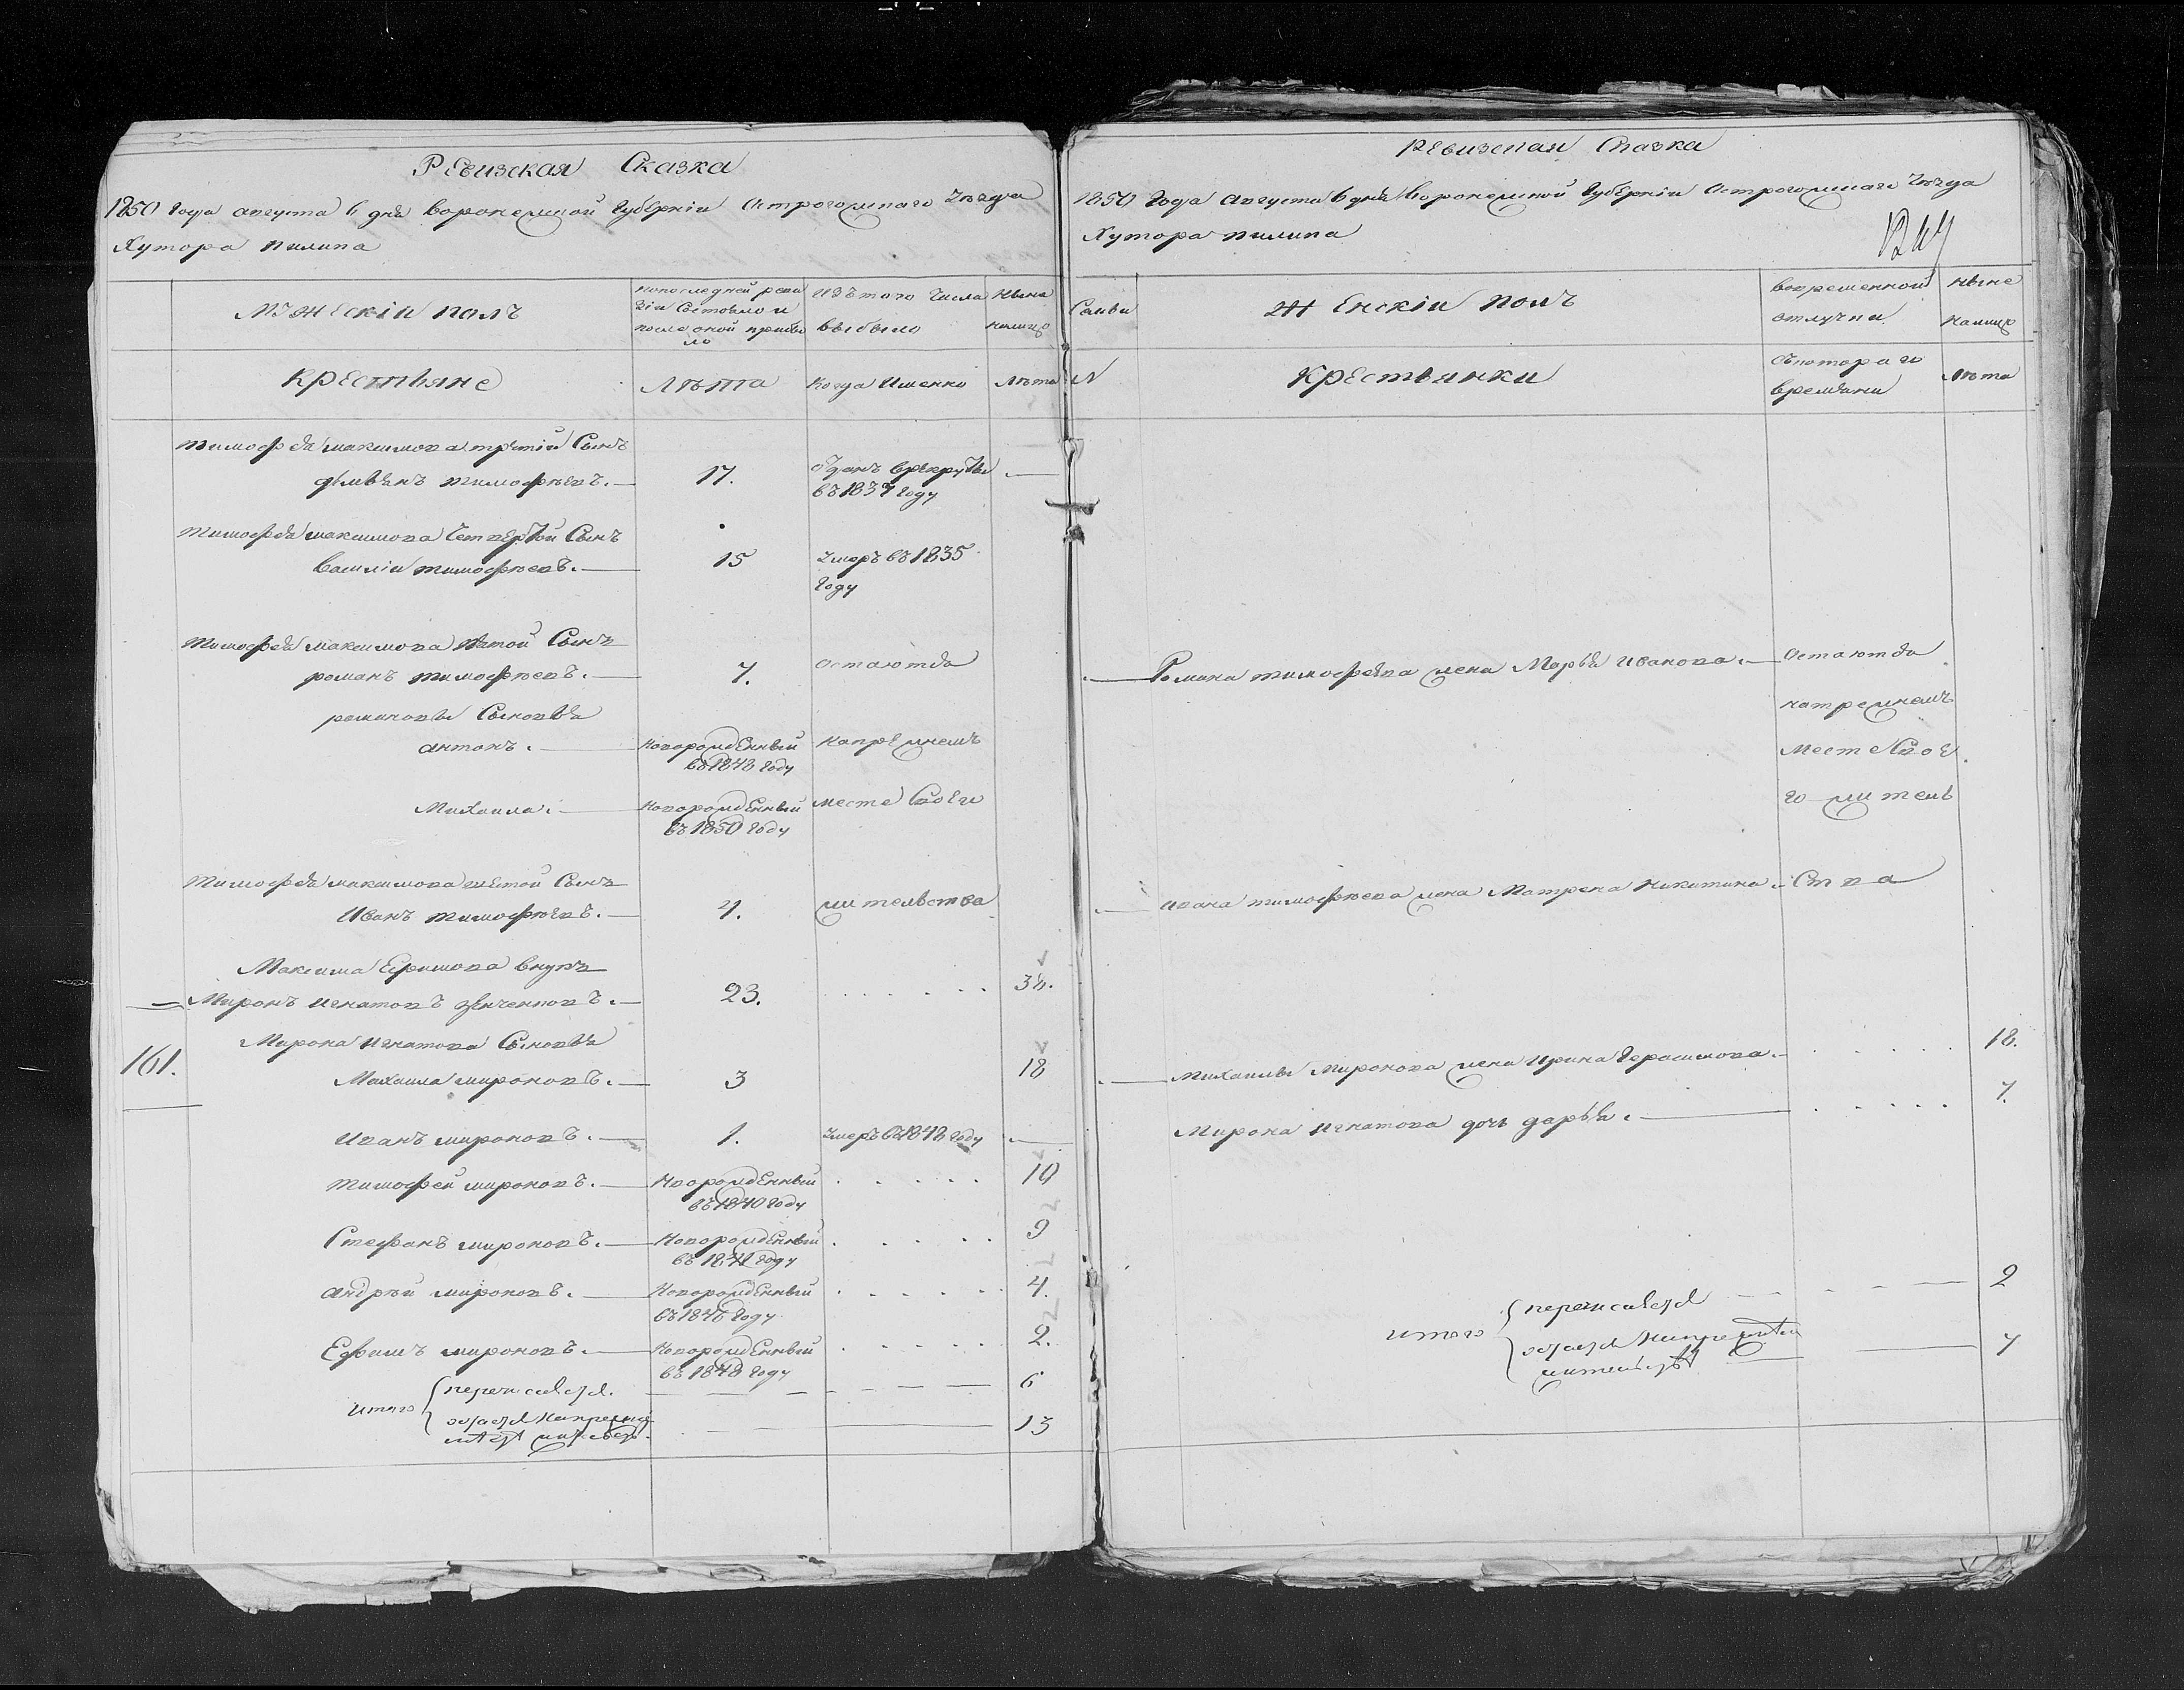 Ревизская Сказка
1850 года августа 6 дня воронежской губерніи Острогожскаго уезда
Хутора пилипа
мужескій полъ
попоследней реви
зіи Состояло и
после оной прибы
ло
Изътого числа
выбыло
Ныне
налицо
крестьяне
Лѣта
Когда Именно
Лѣта
тимофея максимова третій Сынъ
тимофѣевъ.
17.
Отданъ врекруты
въ 1837 году
тимофея максимова четвертой Сынъ
василіи тимофѣевъ.
15
умеръ въ 1835
году
тимофея максимова пятой Сынъ
романъ тимофѣевъ.
7.
остаютъся
романовы Сыновья
антонъ.
новорожденный
въ 1848 году
напрежнемъ
Михаила.
новорожденный
въ 1850 году
месте Своего
тимофея максимова шестой Сынъ
Иванъ тимофѣевъ.
4.
жительства
Максима Ефимова внукъ
Миронъ игнатовъ
23.
Мирона игнатова Сыновья
161.
Михаила мироновъ.
3
18
иванъ мироновъ.
1.
умеръ въ 1848 году
тимофей мироновъ.
новорожденный
въ 1840 году
10
Стефанъ мироновъ.
новорожденный
въ 1841 году
9
андрѣй мироновъ.
новорожденный
въ 1846 году
4.
Ефимъ мироновъ.
новорожденный
въ 1848 году
2.
итого
6
13
Ревизская Сказка
1850 года августа 6 дня воронежской губерніи острогожскаго уезда
Хутора пилипа
Семьи
Женскій полъ
вовременной
отлучки
ныне
налицо
N
крестьянки
съкотораго
времяни
Лѣта
Романа тимофеева жена Марья иванова.
остаютъся
напрежнемъ
месте Свое
го житель
ивана тимофѣева жена Матрена Никитина.
Ства
Михаилы Миронова жена Ирина Герасимова.
18.
Мирона игнатова дочь дарья.
7.
итого
2